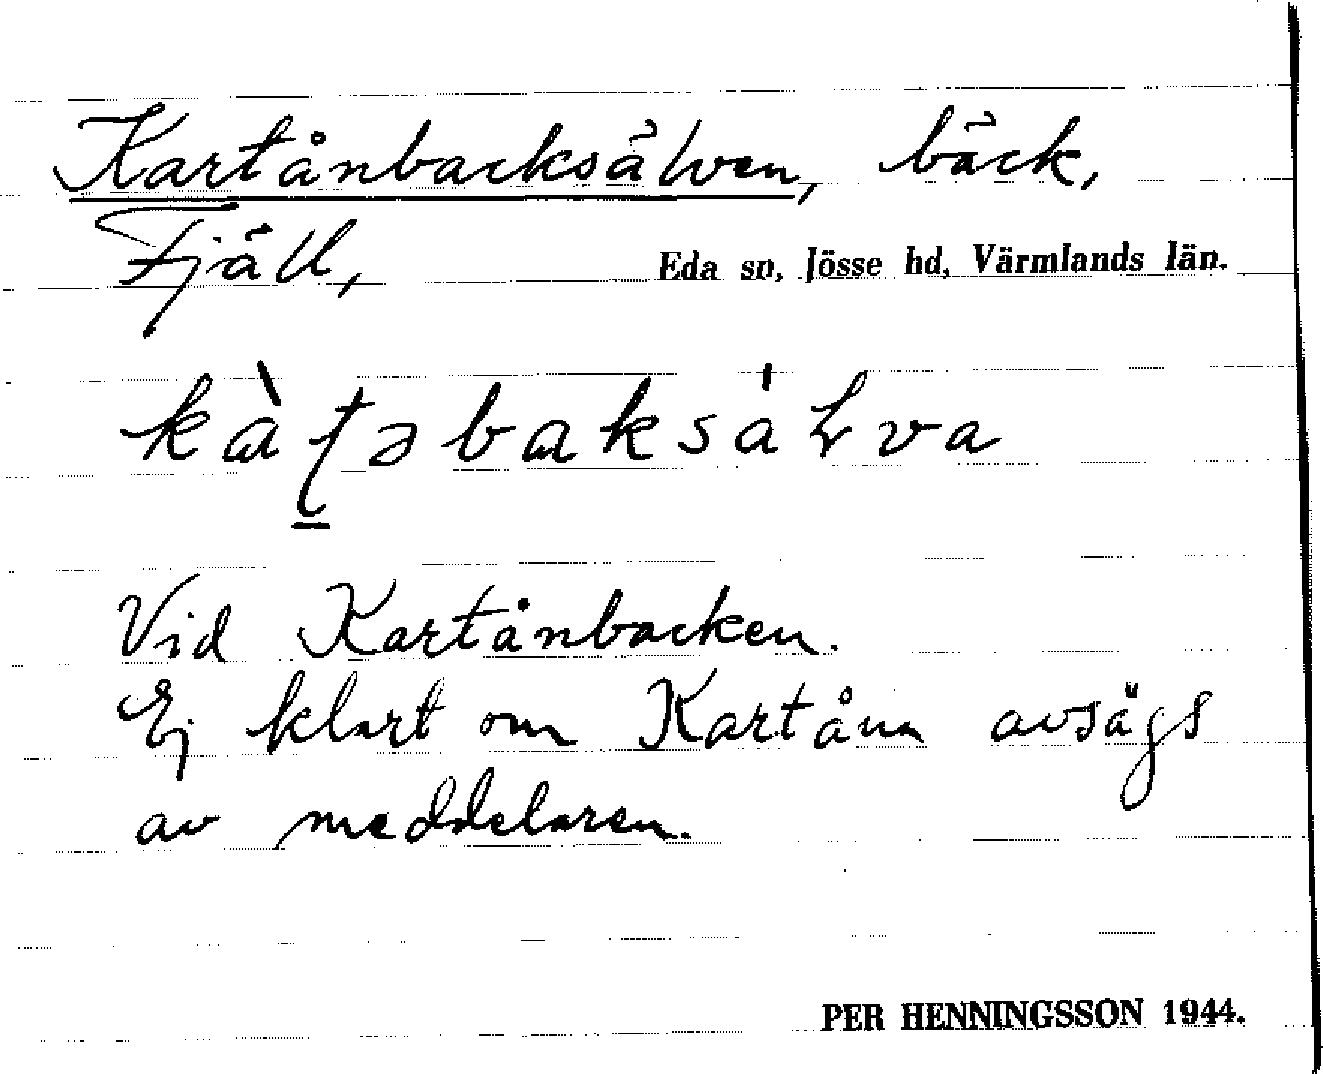 Kartånbacksälven, bäck,
Fjäll, Eda sn, Jösse hd, Värmlands län.
kàʈəbaksáɽva
Vid Kartånbacken.
Ej klart om Kartånn avsägs
av meddelaren.
PER HENNINGSSON 1944.